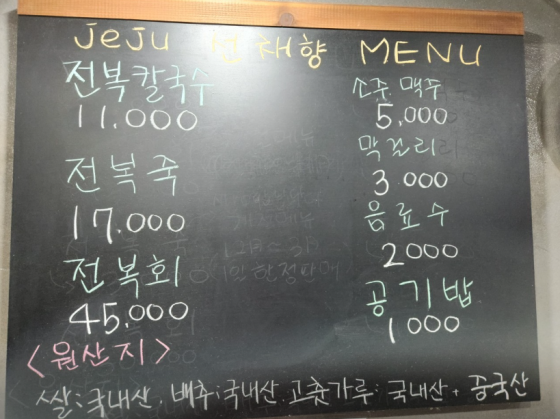 JeJu 선채향 MENU
전복칼국수
11.000
전복죽
17.000
전복회
45.000
소주. 맥주
5.000
막걸리
3 000
음료수
2000
공기밥
1000
<원산지>
쌀:국내산. 배추:국내산. 고춘가루: 국내산 + 중국산